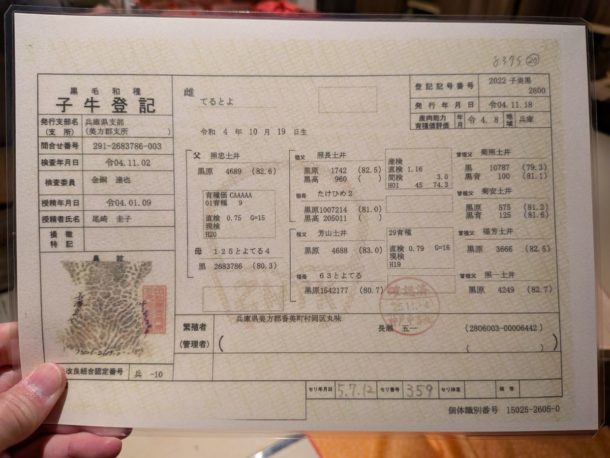 8395 20
黒毛和種
子牛登記
発行支部名
(支所)
兵庫県支部
(美方郡支所)
問合せ番号 291-2683786-003
検査年月日 令04.11.02
検査委員
授精年月日 令04.01.09
授精者氏名 尾崎 圭子
損徴
特記
鼻紋
改良組合認定番号 兵 -10
雌
てるとよ
令和 4年 10月 19日生
登記記号番号 2022 子美黒
2800
発行年月日 令04.11.18
産肉能力
育種価評価
年月 令4.8 地域 兵庫
父 照忠土井
黒原 4689 (82.6)
育種価 CAAAAA
01育種 9
直検 0.75 G=15
現検
H20
母 125とよてる4
黒 2683786 (80.3)
祖父 照長土井
黒原 1742 (82.5)
黒高 960 ( )
祖母 たけひめ2
黒原1007214 (81.0)
黒高 205011 ( )
祖父 芳山土井
黒原 4688 (83.0)
祖母 63とよてる
黒原1542177 (80.7)
産検
直検 1.16
間検 3.0
H01 45 74.3
29育種
直検 0.79 G=16
現検
H19
曽祖父 菊照土井
黒 10787 (79.3)
黒青 100 (81.1)
曽祖父 菊安土井
黒原 575 (81.2)
黒青 125 (81.6)
曽祖父 福芳土井
黒原 3666 (82.5)
曽祖父 照一土井
黒原 4249 (82.7)
繁殖者
(管理者)
兵庫県美方郡香美町村岡区丸味
五一 (2806003-00006442)
セリ年月日 5.7.12 セリ番号 359 セリ体重
個体識別番号 15025-2605-0